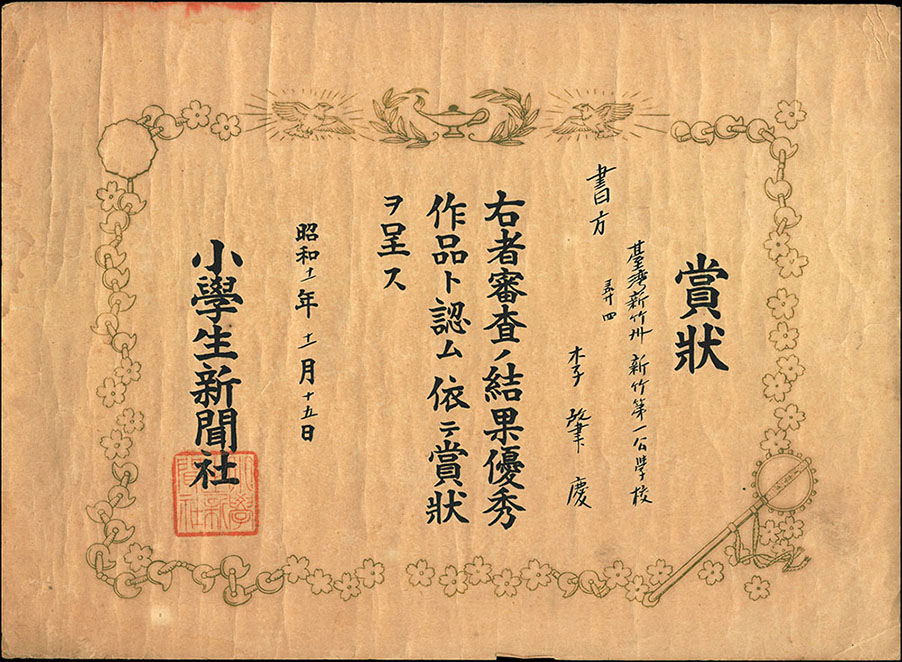 賞狀
臺灣新竹州 新竹第一公學校
書方
李肇慶
右者審査ノ結果優秀
作品ト認ム依テ賞狀
ヲ呈ス
昭和十一年 十一月十五日
小學生新聞社
小學
生新
聞社